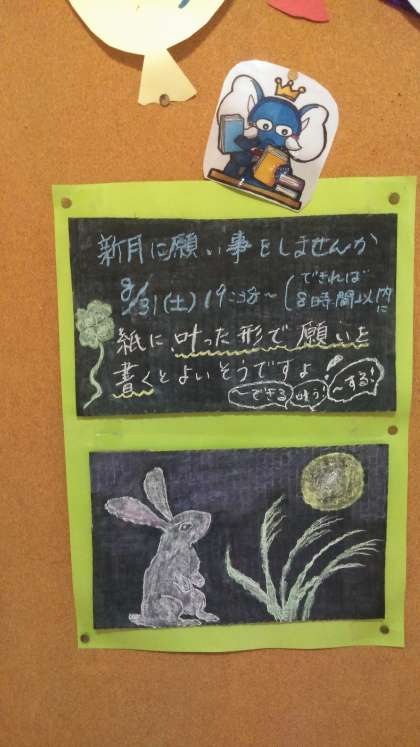 新月に願い事をしませんか
8/31(土)19:33分～(できれば8時間以内に
紙に叶った形で願いを
書くとよいそうですよ!
～できる 叶う! ～する!